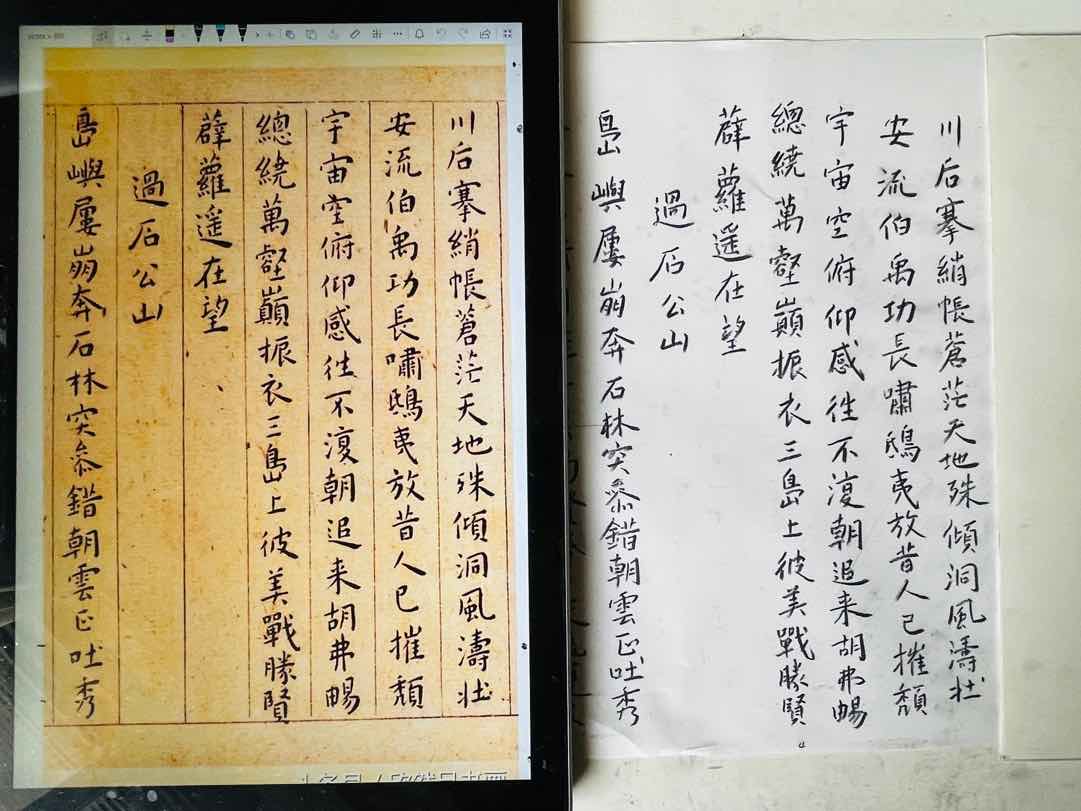 川后搴綃帳蒼茫天地殊傾洞風濤壯
安流伯禹功長嘯鴟夷放昔人已摧頹
宇宙空俯仰感往不復朝追来胡弗暢
總繞萬壑巔振衣三島上彼美戰勝賢
薜蘿遥在望
過石公山
島嶼屢崩奔石林突參錯朝雲正吐秀
川后搴綃帳蒼茫天地殊傾洞風濤壯
安流伯禹功長嘯鴟夷放昔人已摧頹
宇宙空俯仰感往不復朝追来胡弗暢
總繞萬壑巔振衣三島上彼美戰勝賢
薜蘿遥在望
過石公山
島嶼屢崩奔石林突參錯朝雲正吐秀